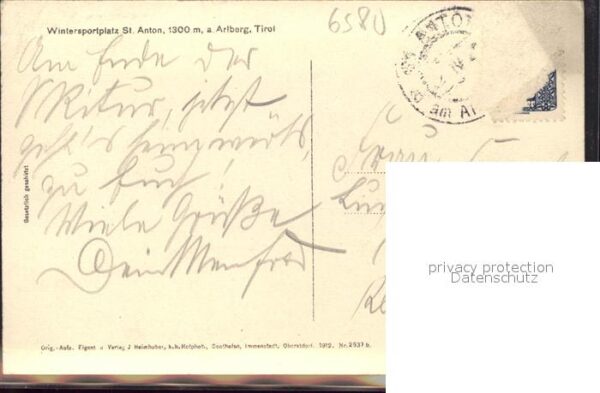 Wintersportplatz St. Anton, 1300 m, a. Arlberg, Tirol
6580
ST. ANTON
am Ar
Am Ende der
Skitur, jetzt
geht's heimwärts,
zu Euch!
Viele Grüße
Dein Manfred
Frau
Gesetzlich geschützt
privacy protection
Datenschutz
Orig.-Aufn. Eigent. u. Verlag J. Heimhuber, k. b. Hofphot., Sonthofen, Immenstadt, Oberstdorf. 1912. Nr. 2537 b.